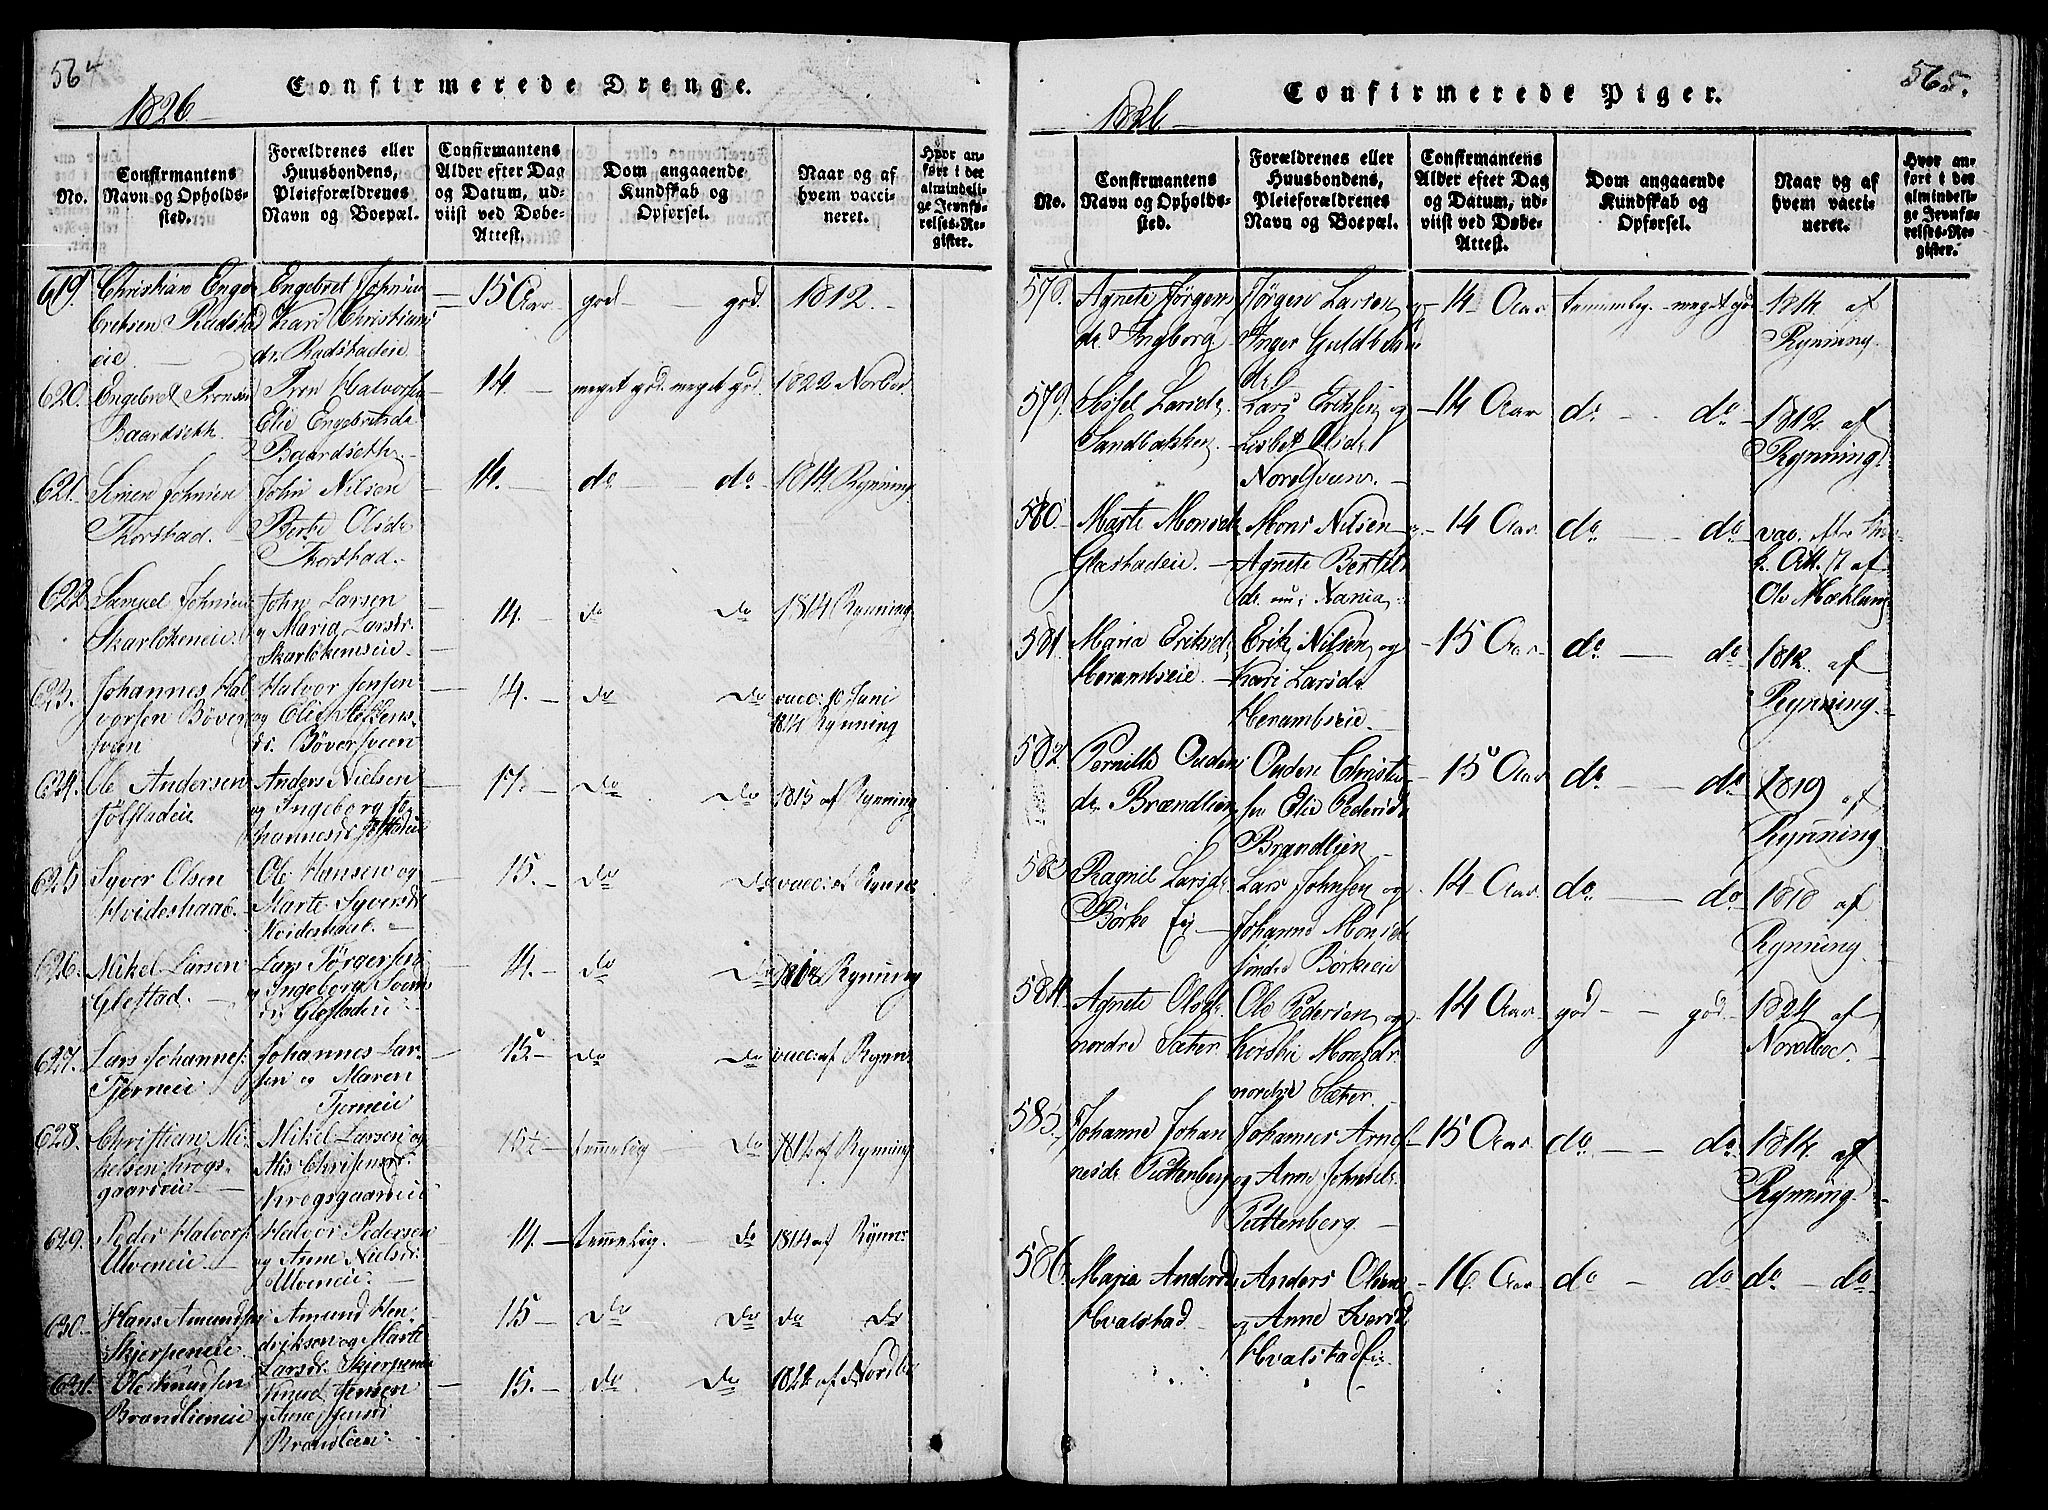 564
Confirmerede Drenge.
1826
No.
Confirmantens Navn og Opholdssted.
Forældrenes eller Huusbondens, Pleieforældrenes Navn og Boepæl.
Confirmantens Alder efter Dag og Datum, udviist ved Døbe-Attest.
Dom angaaende Kundskab og Opførsel.
Naar og af hvem vaccineret.
Hvor anført i det almindelige Jevnførelses-Register.
619. Christian Enge- Engebret Johnsen 15 Aar god — god. 1812.
bretsen Radstad Kari Christians
eie dr. Radstadeie
620. Engebret Tronsen Tron Halvorsen 14 — meget god. meget god. 1822 Nordbo
Baardseth. Elie Engebretsdr
Baardseth
621. Simen Johnsen John Nilsen 14. — do — do 1814 Rynning
Thorstad. Berte Olsdr
Thorstad.
622 Samuel Johnsen John Larsen 14. — do do 1814 Rynning
Skarløkeneie. og Maria Larsdr.
Skarløkenseie
623. Johannes Hal Halvor Jensen 14. — do do vacc: 10 Juni
vorsen Bøver og Elie Steffens- 1814 Rynning
sveen dr. Bøversveen
624. Ole Andersen Anders Nielsen 17. — do do 1815 af Rynning
Følstadeie og Ingeborg Jo
hannesdr. Følstadeie
625 Syver Olsen Ole Hansen og 15. — do do vacc: af Rynn:
Hvideskaal. Marte Syversdr
Hvideskaal
626. Mikel Larsen Lars Jørgensen 14. — do do 1818 Rynning
Glestad. og Ingeborg Svends
dr. Glestadeie
627. Lars Johannes: Johannes Lar- 15. — do do vacc: af Rynn:
Tjerneie sen og Maren
Tjerneie
628. Christian Mi- Mikel Larsen og 15½ temmelig do 1812 af Rynning
kelsen Krogs- Mis Christensdr.
gaardeie Krogsgaardeie
629. Peder Halvors: Halvor Pedersen 14. — temmelig. — do 1814 af Rynn:
Ulveneie og Anne Nielsdr.
Ulveneie.
630. Hans Amundsen Amund Hen- 15 — do do do do
Skjerpeneie driksen og Marte
Larsdr. Skjerpeneie
631. Ole Knudsen Knud Jensen 15. — do. do 1822 af Nordbo
Brandlieneie og Anne Jensdr
Brandlien.
565.
Confirmerede Piger.
1826
No.
Confirmantens Navn og Opholdssted.
Forældrenes eller Huusbondens, Pleieforældrenes Navn og Boepæl.
Confirmantens Alder efter Dag og Datum, udviist ved Døbe-Attest.
Dom angaaende Kundskab og Opførsel.
Naar og af hvem vaccineret.
Hvor anført i det almindelige Jevnførelses-Register.
578. Agnete Jørgens Jørgen Larsen og 14 Aar temmelig — meget god 1814 af
dr. Ingborg Inger Guldbrans Rynning.
dr.
579. Sissel Larsdr. Lars Eriksen og 14 Aar do — do 1812 af
Sandbakken Lisbet Olsdr Rynning.
Nordsveen.
580 Marte Monsdr. Mons Nilsen og 14 Aar do — do vac. efter
Glestadeie. Agnete Bertels Att. af
dr. Ole Mæhlum
581. Maria Eriksdr. Erik Nilsen og 15 Aar do — do 1812 af
Herambseie. Kari Larsdr Rynning.
Herambseie
582. Pernille Oudens Ouden Christen 15 Aar do — do 1819 af
dr Brændlien sen Elie Pedersdr Rynning.
Brændlien
583 Ragnil Larsdr Lars Johnsen og 14 Aar do — do 1818 af
Børke Eje Johanne Monsdr Rynning.
søndre Børkeeie
584. Agnete Olsdr. Ole Pedersen og 14 Aar god — god. 1824 af
nordre Sæter. Kirstie Monsdr. Nordboe.
nordre Sæter.
585. Johanne Johan Johannes Arnes 15 Aar do — do 1814 af
nesdr Puttenberg og Anne Johnsdr. Rynning.
Puttenberg
586. Maria Andersdr. Anders Olsen 16 Aar do — do do — do
Hvalstad og Anne Iversdr
Hvalstadeie